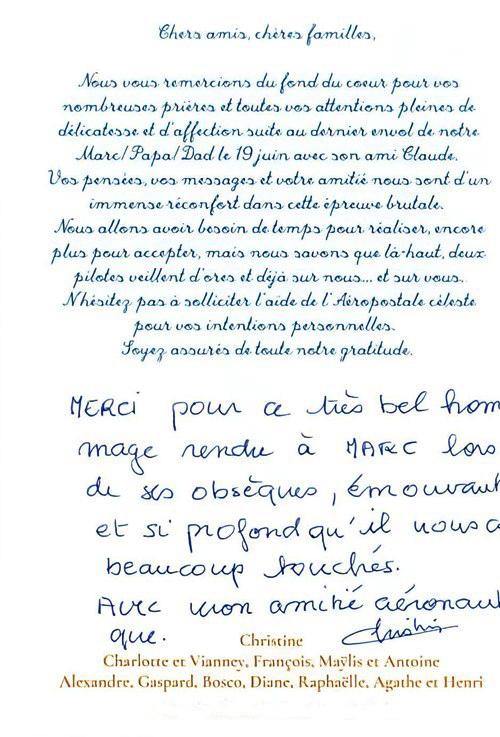 Chers amis, chères familles,
Nous vous remercions du fond du coeur pour vos
nombreuses prières et toutes vos attentions pleines de
délicatesse et d'affection suite au dernier envol de notre
Marc/Papa/Dad le 19 juin avec son ami Claude.
Vos pensées, vos messages et votre amitié nous sont d'un
immense réconfort dans cette épreuve brutale.
Nous allons avoir besoin de temps pour réaliser, encore
plus pour accepter, mais nous savons que là-haut, deux
pilotes veillent d'ores et déjà sur nous... et sur vous.
N'hésitez pas à solliciter l'aide de l'Aéropostale céleste
pour vos intentions personnelles.
Soyez assurés de toute notre gratitude.
MERCI pour ce très bel hom
mage rendu à MARC lors
de ses obsèques, émouvant
et si profond qu'il nous a
beaucoup touchés.
Avec mon amitié aéronaut
que.
Christine
Christine
Charlotte et Vianney, François, Maÿlis et Antoine
Alexandre, Gaspard, Bosco, Diane, Raphaëlle, Agathe et Henri